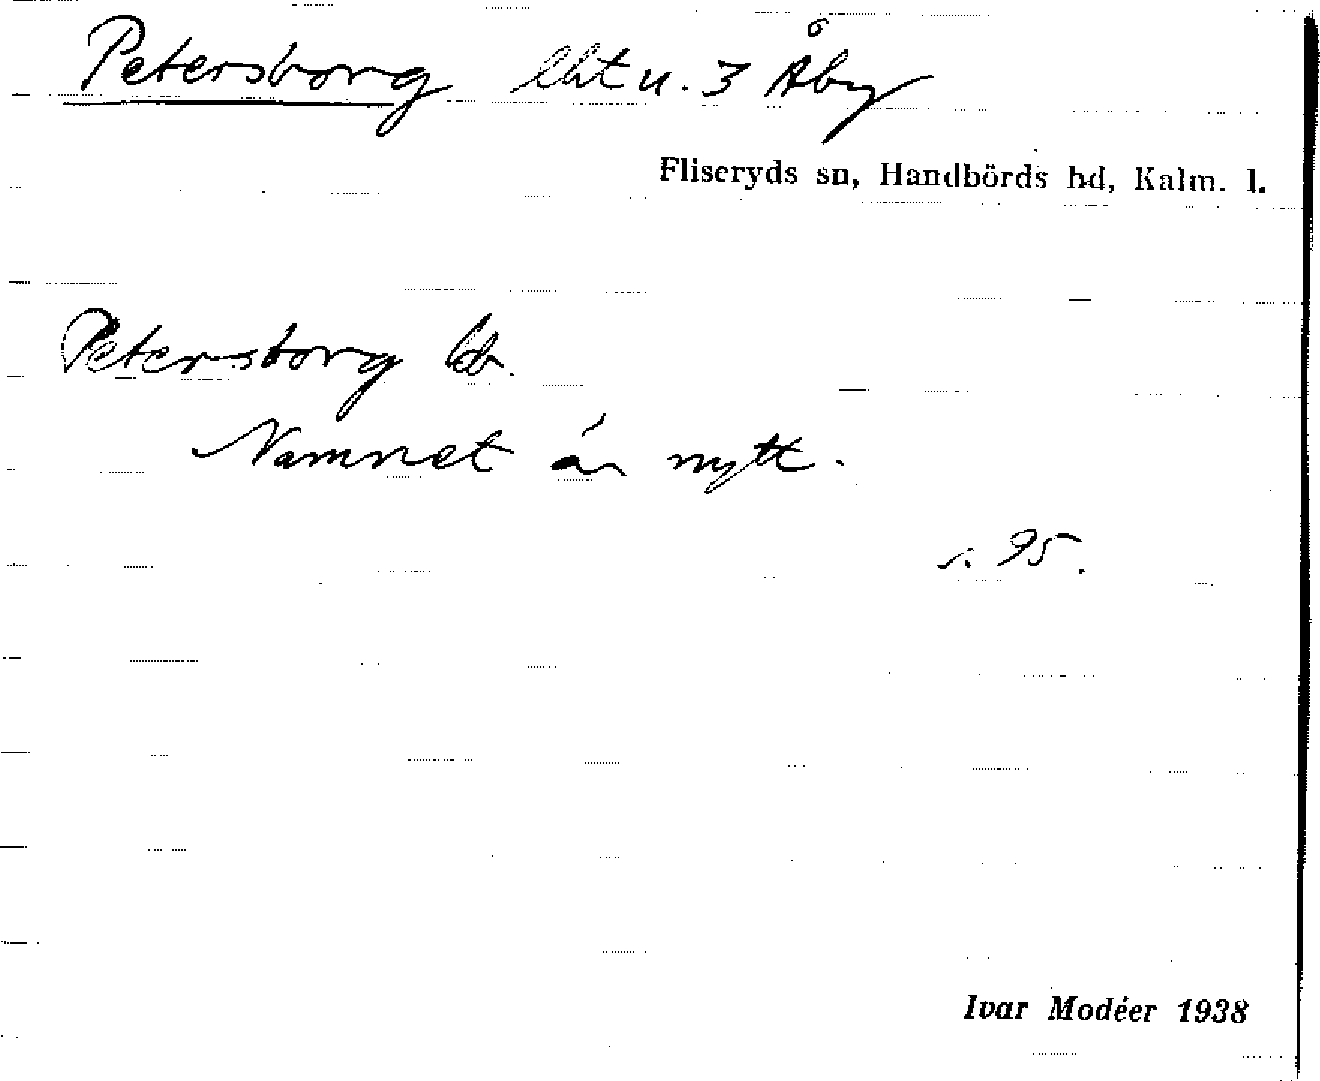 Petersborg lht u. 3 Åby
Fliseryds sn, Handbörds hd, Kalm. l.
Petersborg
Namnet är nytt.
s. 95.
Ivar Modéer 1938